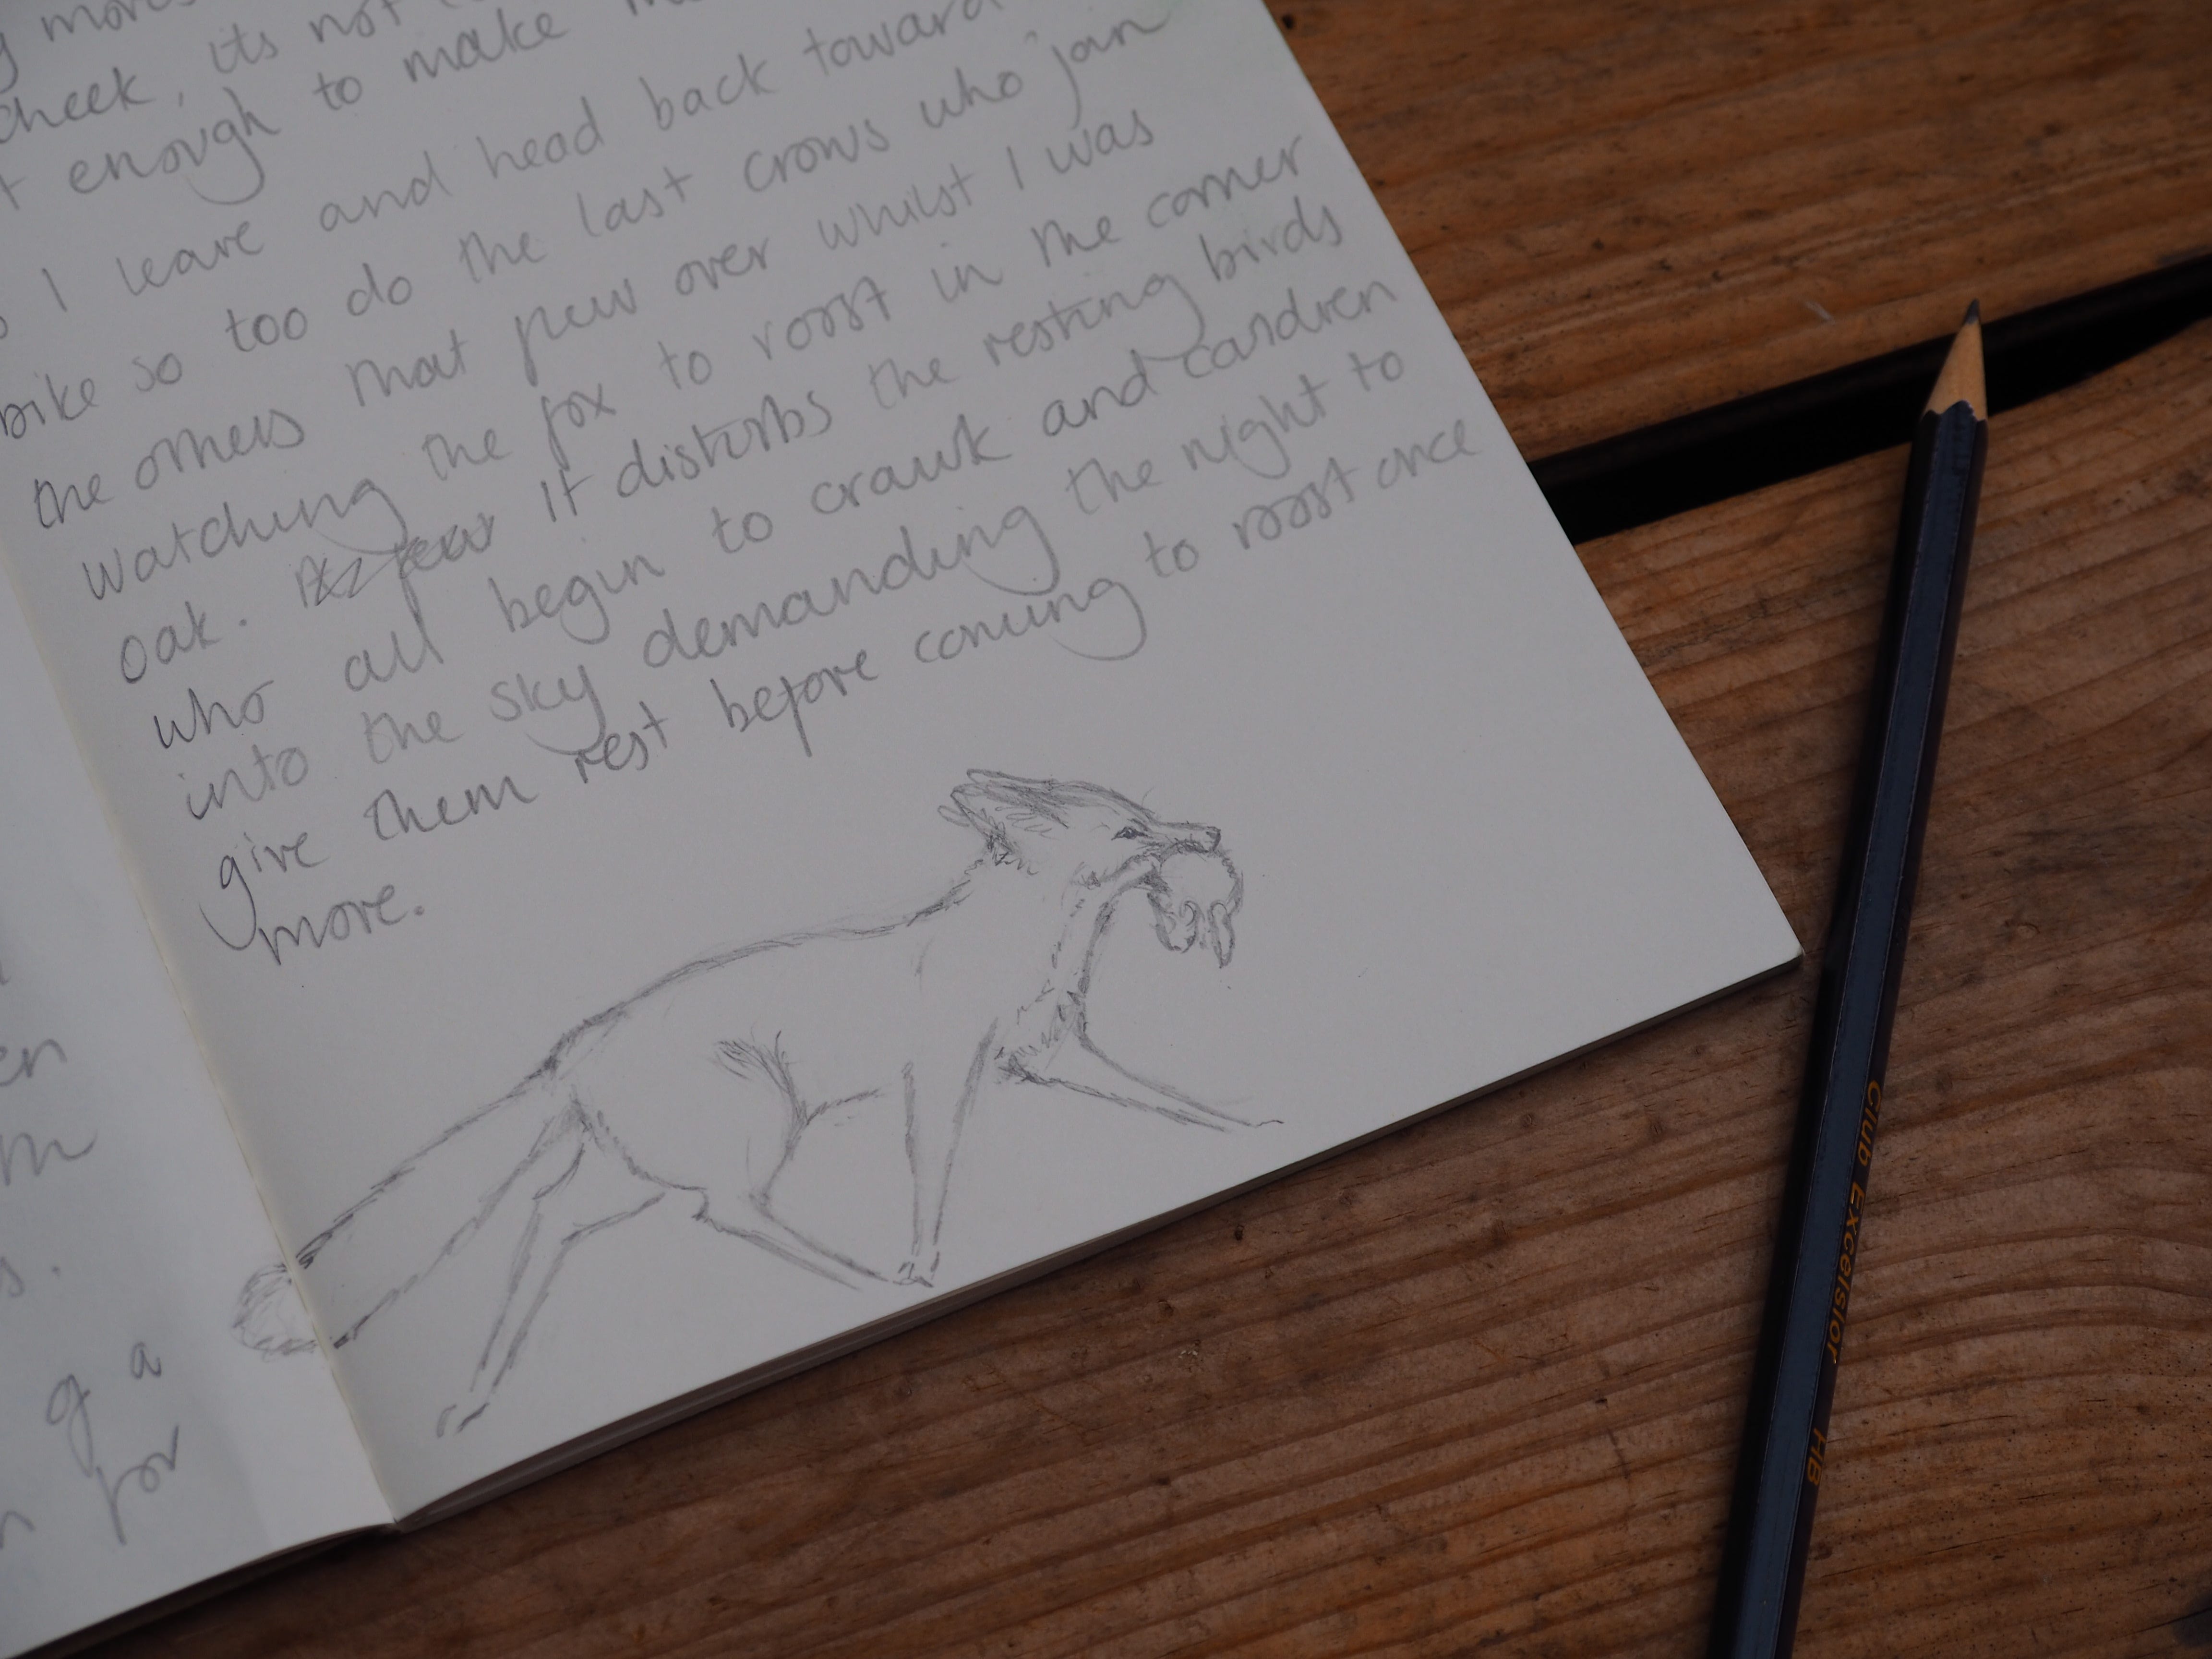 en
m
s.
g a
for
cheek, its not
enough to make
I leave and head back toward
bike so too do the last crows who join
the others that flew over whilst I was
watching the fox to roost in the corner
oak. fear It disturbs the resting birds
who all begin to crawk and
into the sky demanding the night to
give them rest before coming to roost once
more.
Club Excelsior HB